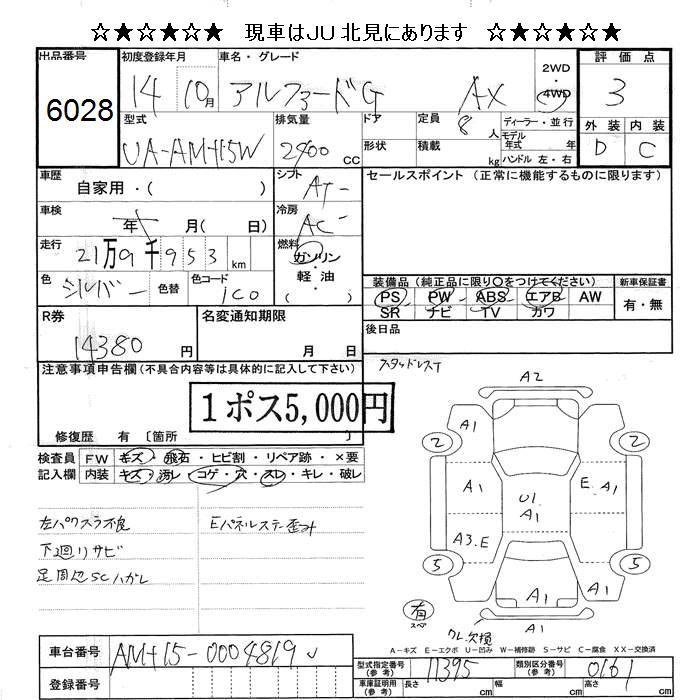 ☆★☆★☆★ 現車はJU北見にあります ☆★☆★☆★
出品番号 初度登録年月 車名・グレード 2WD 評価点
6028 14 10月 アルファードG AX 4WD 3
型式 排気量 ドア 定員 8人 ディーラー・並行 外装 内装
UA-AMH15W 2400cc 形状 積載 kg モデル年式 年 ハンドル 左・右 D C
車歴 自家用・( ) シフト AT セールスポイント (正常に機能するものに限ります)
車検 年 月( 日) 冷房 AC
走行 21万9千953km 燃料 ガソリン・軽・油( )
色 シルバー 色替 色コード 1C0
装備品 (純正品に限り○をつけてください) 新車保証書
PS PW ABS エアB AW 有・無
SR ナビ TV カワ
R券 14380円 名変通知期限 月 日 後日品
スタッドレスT
注意事項申告欄 (不具合内容等は具体的に記入して下さい)
1ポス5,000円
修復歴 有 〔箇所 〕
検査員 FW キズ・飛石・ヒビ割・リペア跡・×要
記入欄 内装 キズ・汚レ・コゲ・穴・スレ・キレ・破レ
左パワスラ不良 Eパネルステー歪み
下廻リサビ
足周辺SCハガレ
A2
A1
2 2
A1 U1 A1 E A1
A3.E
5 5
A1 A1
有 スペア
クレ欠損 A1
A-キズ E-エクボ U-凹み W-補修跡 S-サビ C-腐食 XX-交換済
車台番号 AMH15-0004819
登録番号
型式指定番号(参考) 11395 類別区分番号(参考) 0161
車庫証明用(参考) 長さ cm 幅 cm 高さ cm